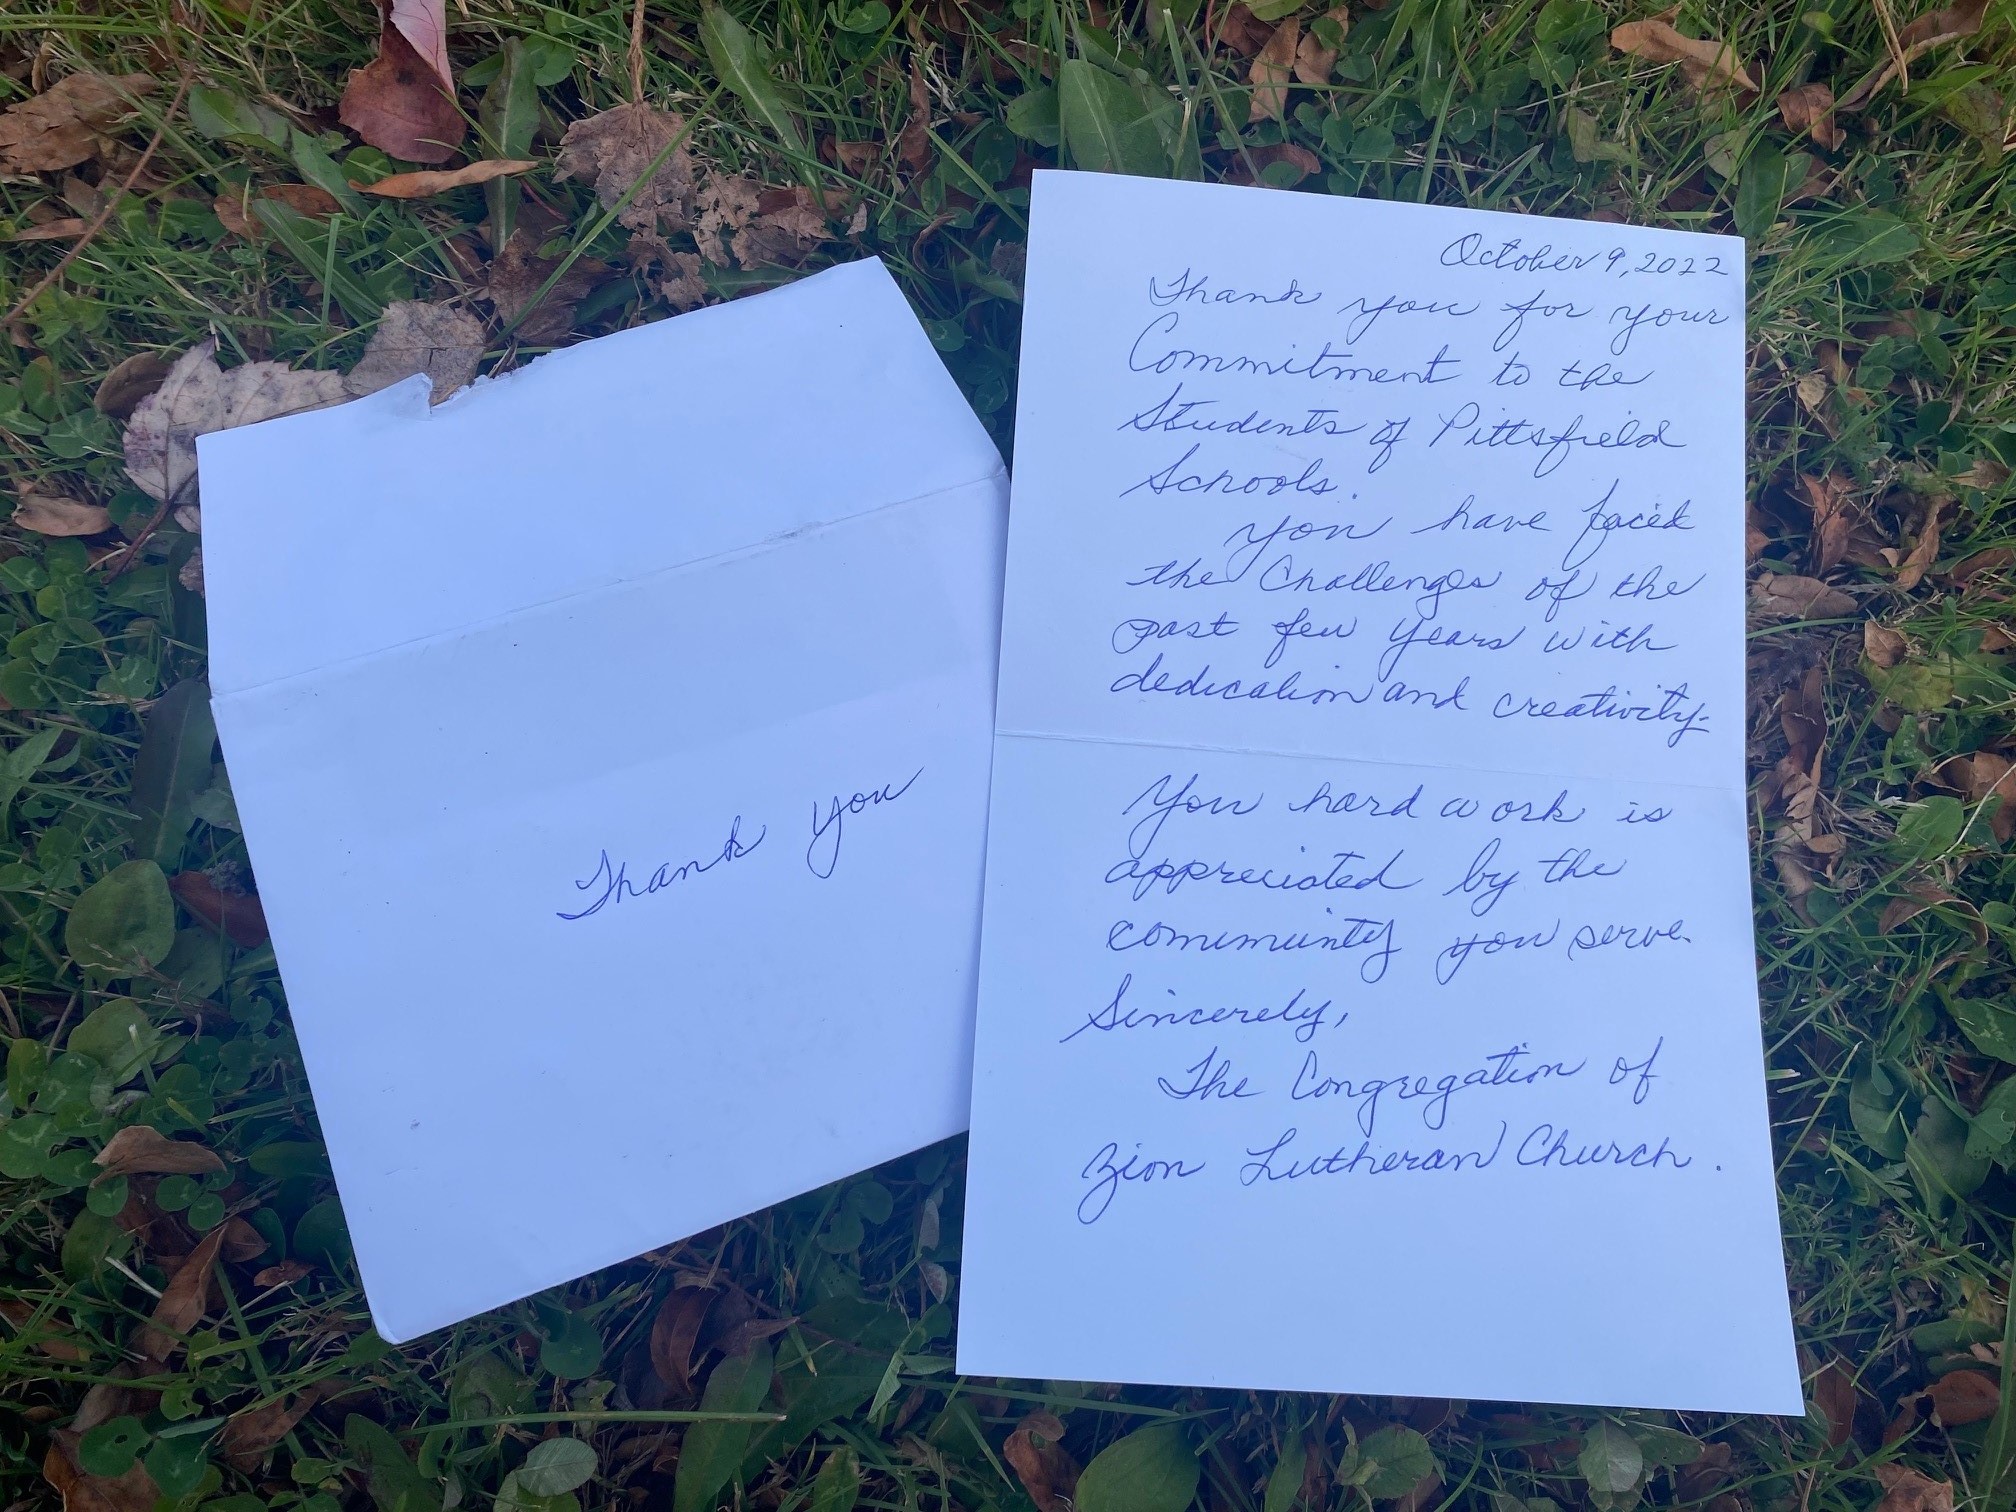 Thank you
October 9, 2022
Thank you for your
Commitment to the
Students of Pittsfield
Schools.
You have faced
the Challenges of the
past few years with
dedication and creativity.
You hard work is
appreciated by the
community you serve.
Sincerely,
The Congregation of
Zion Lutheran Church.